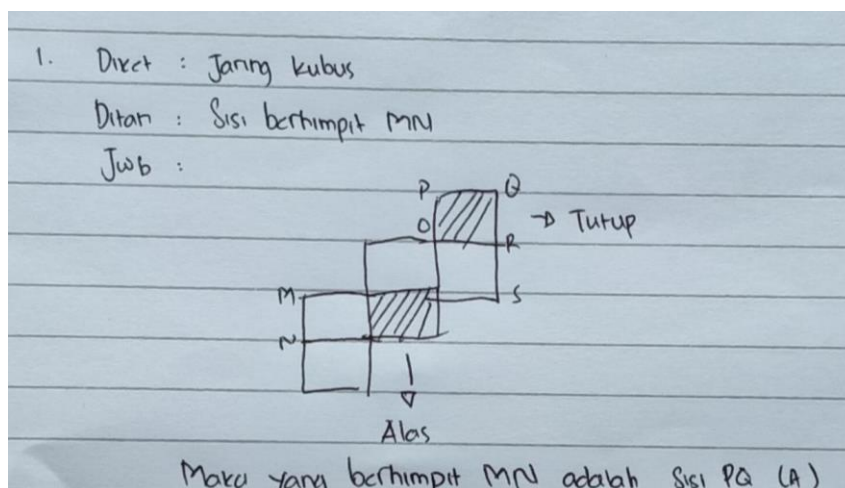 1. Diket : Jaring kubus
Ditan : Sisi berhimpit MN
Jwb :
P Q
O → Tutup
R
M S
N
Alas
Maka yang berhimpit MN adalah sisi PQ (A)